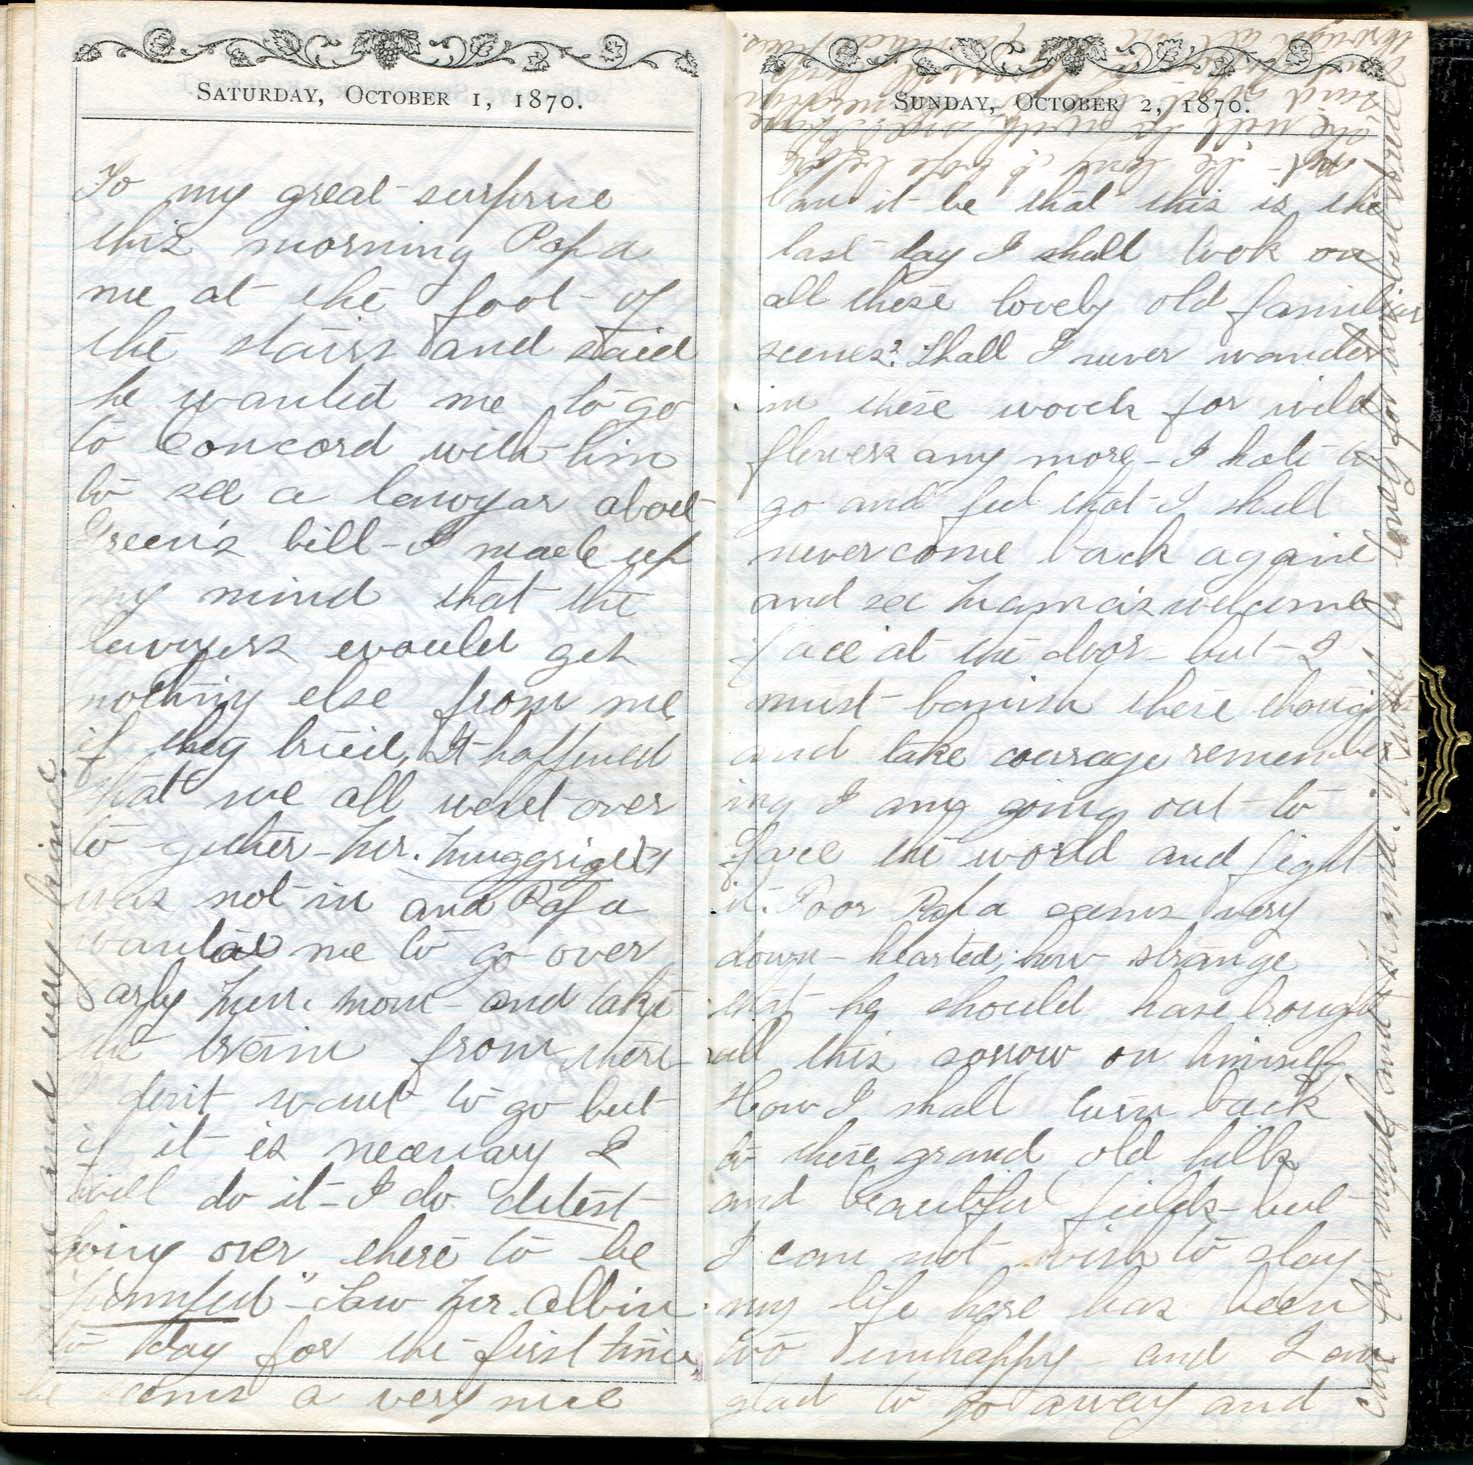 SATURDAY, OCTOBER 1, 1870.
To my great surprise
this morning Papa
me at the foot of
the stairs and said
he wanted me to go
to Concord with him
to see a lawyer about
Green's bill - I made up
my mind that the
lawyers would get
nothing else from me
if they tried, It happened
that we all went over
to gether - Mr. Muggridge
was not in and Papa
wanted me to go over
early Mon. morn - and take
the train from there
I don't want to go but
if it is necessary I
will do it - I do detest
going over there to be
"pumped" - Saw Mr. Albin
to day for the first time
he seems a very nice
and very kind
SUNDAY, OCTOBER 2, 1870.
Can it be that this is the
last day I shall look on
all these lovely old familiar
scenes? Shall I never wander
in these woods for wild
flowers any more - I hate to
go and feel that I shall
never come back again
and see Mama's welcome
face at the door - but I
must banish these thoughts
and take courage remember
ing I am going out to
face the world and fight
it. Poor Papa seems very
down-hearted, how strange
that he should have brought
all this sorrow on himself
How I shall turn back
to these grand old hills
and beautiful fields - but
I can not wish to stay
my life here has been
too unhappy - and I am
glad to go away and
care for myself and Mama. It will be lonely for her but